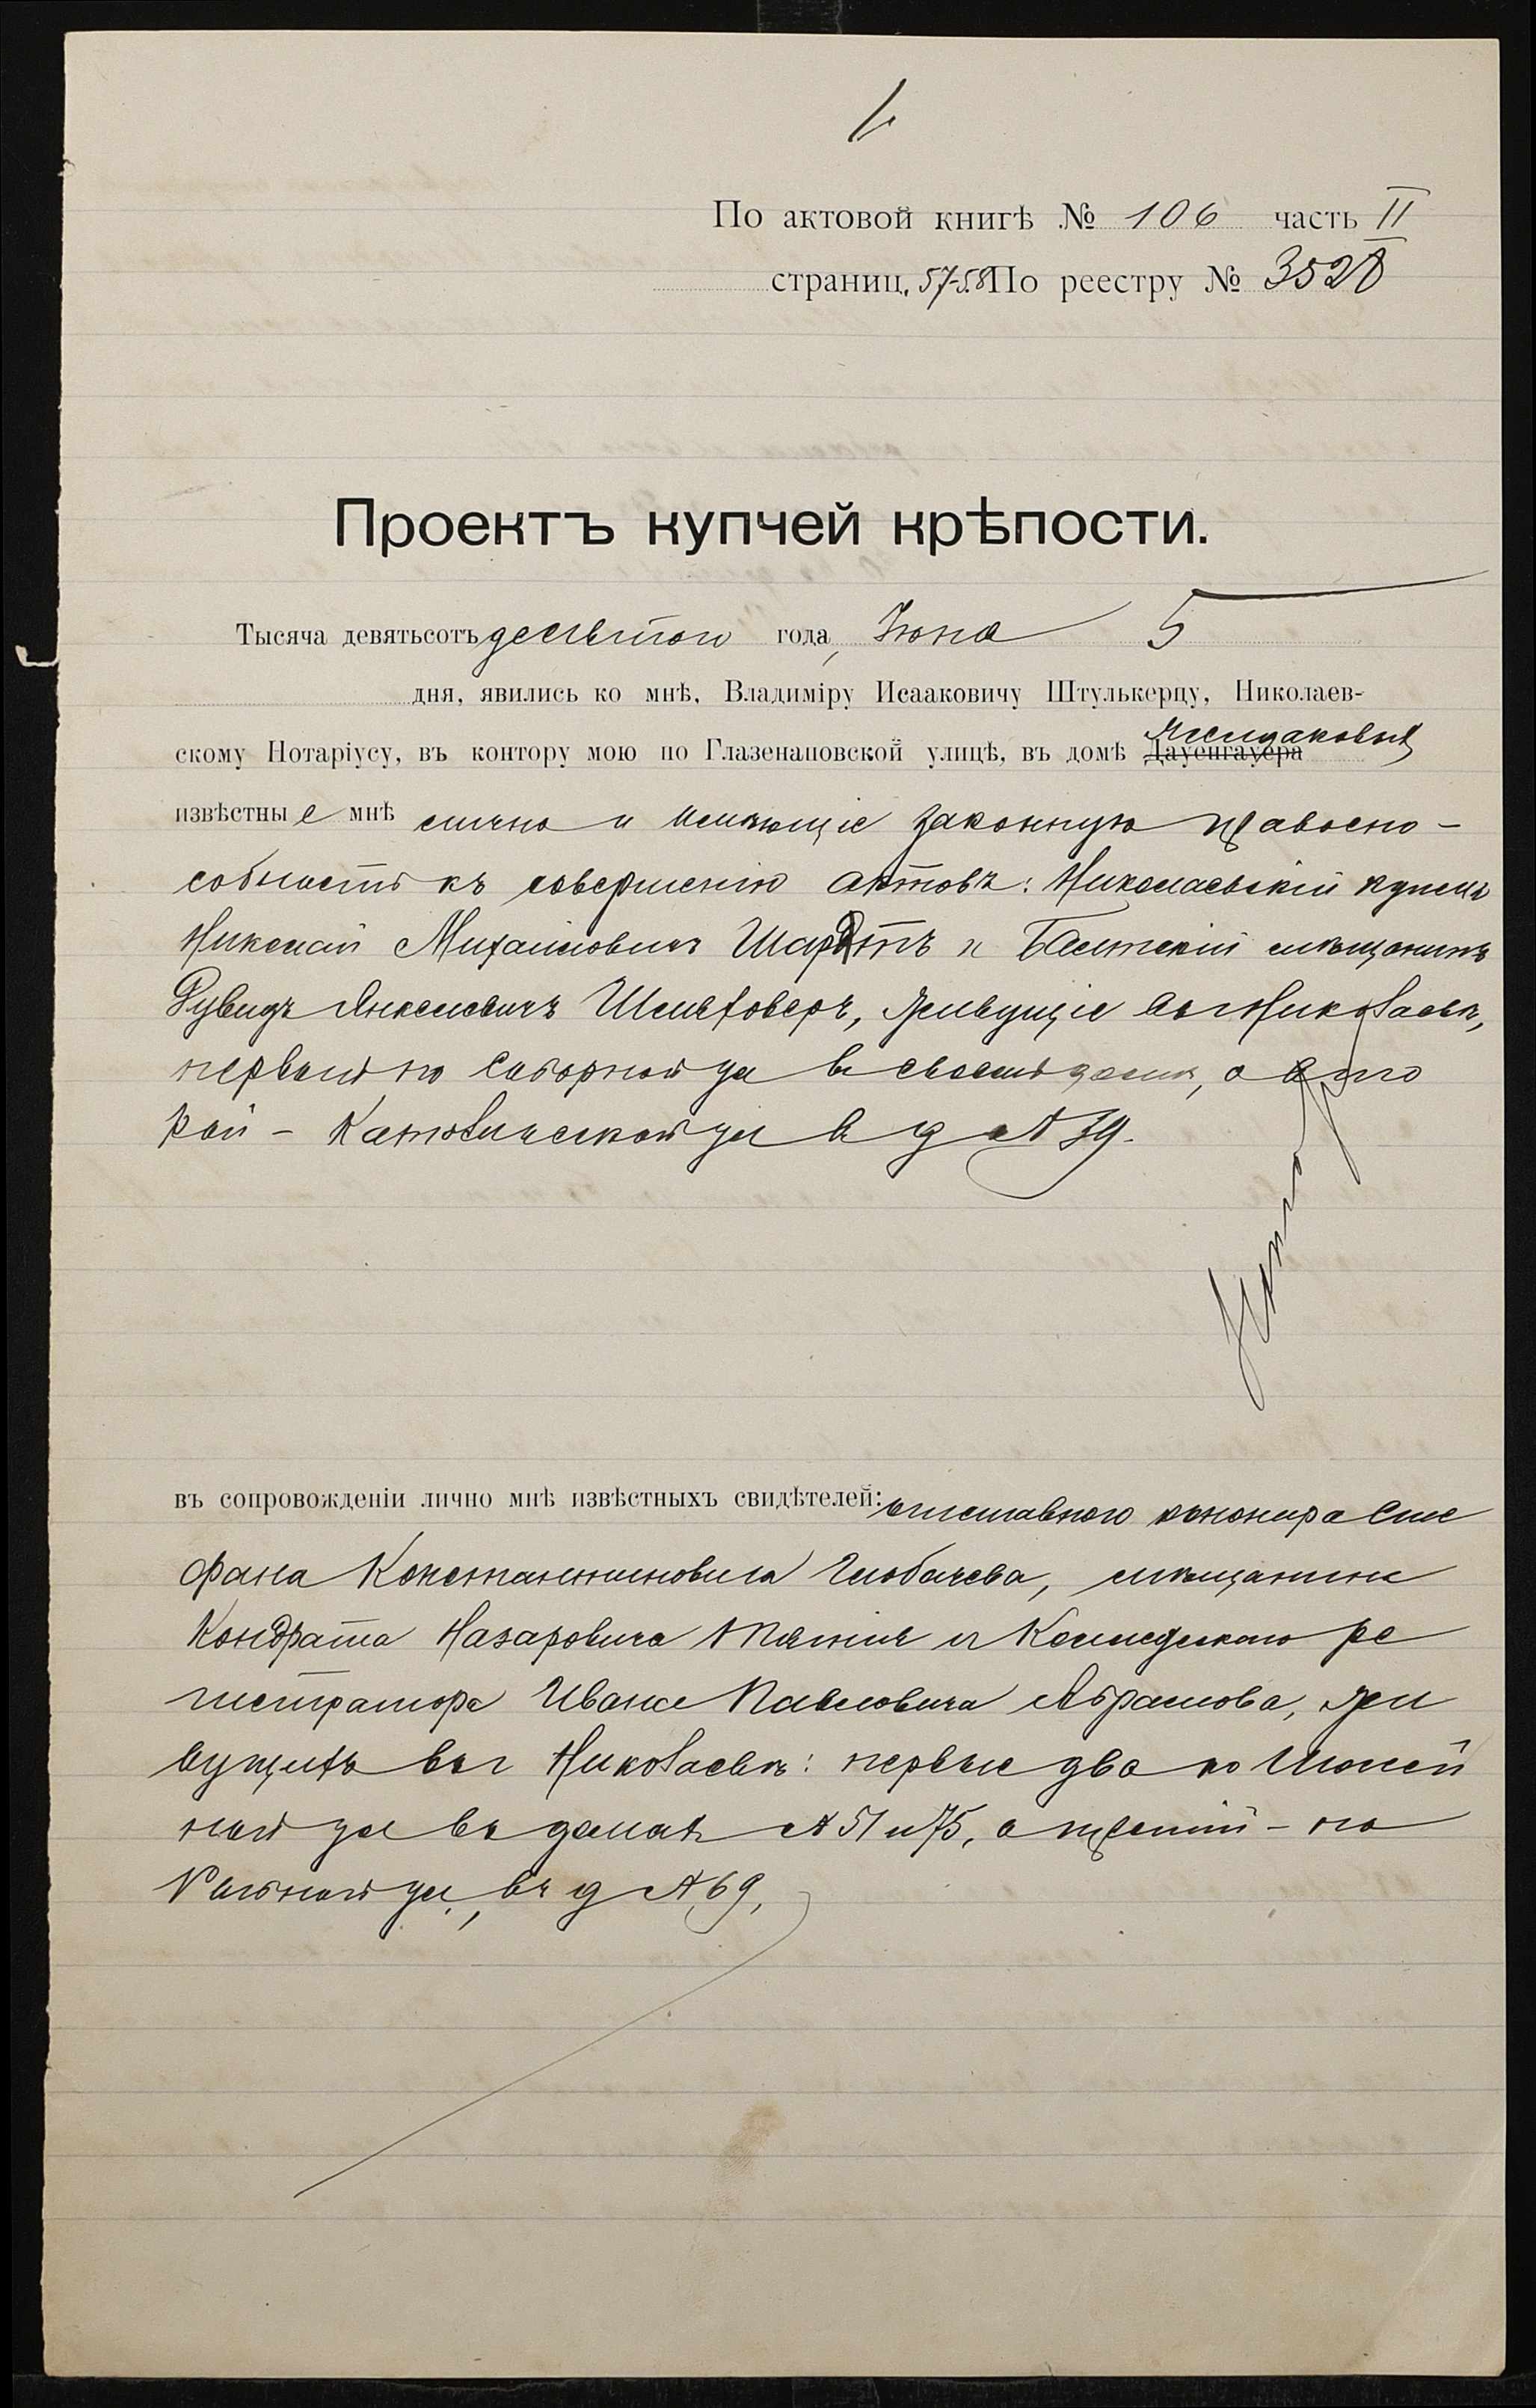 1
По актовой книгѣ № 106 часть II
страниц. 57-58 По реестру № 3528
Проектъ купчей крѣпости.
Тысяча девятьсотъ десятого года, Іюня 5
дня, явились ко мнѣ, Владиміру Исааковичу Штулькерцу, Николаев-
скому Нотаріусу, въ контору мою по Глазенаповской улицѣ, въ домѣ Дауенгауера
извѣстные мнѣ лично и имѣющіе законную правоспо-
собность къ совершенію актовъ: Николаевскій купецъ
Николай Михайловичъ и Балтскій мѣщанинъ
Рувидъ Янкелевичъ Шмѣ, живущіе въ г Николаевѣ,
первый по Соборной ул въ своемъ домѣ, а вто
рой - Католической ул въ д № 39.
въ сопровожденіи лично мнѣ извѣстныхъ свидѣтелей: отставного канонира Сте
фана Константиновича Глобачева, мѣщанина
Кондрата Назаровича и Коллежскаго ре
гистратора Ивана Павловича Абрамова, жи
вущихъ въ г Николаевѣ: первые два по
ной ул въ домахъ № 51 и 75, а третій - по
ул, въ д № 69,